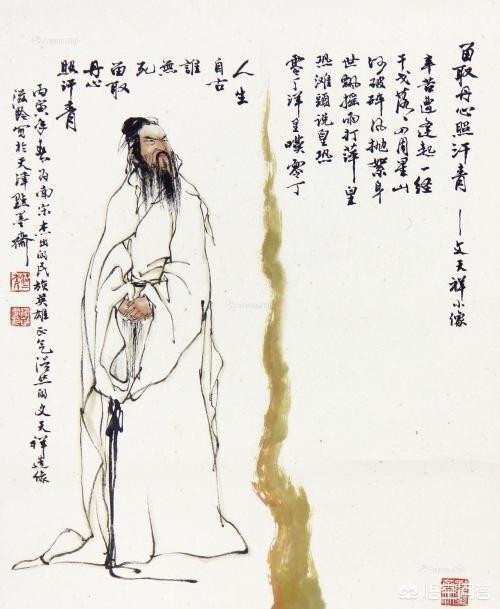 留取丹心照汗青 — 文天祥小像
辛苦遭逢起一经
干戈落々四周星山
河破碎风抛絮身
世飘摇雨打萍皇
恐滩頭说皇恐
零丁洋里嘆零丁
人生
自古
誰
無
死
留取
丹心
照汗青
丙寅年春为南宋杰出的民族英雄正气浩然的文天祥造像
滋龄写于天津點墨斋
悟空问答